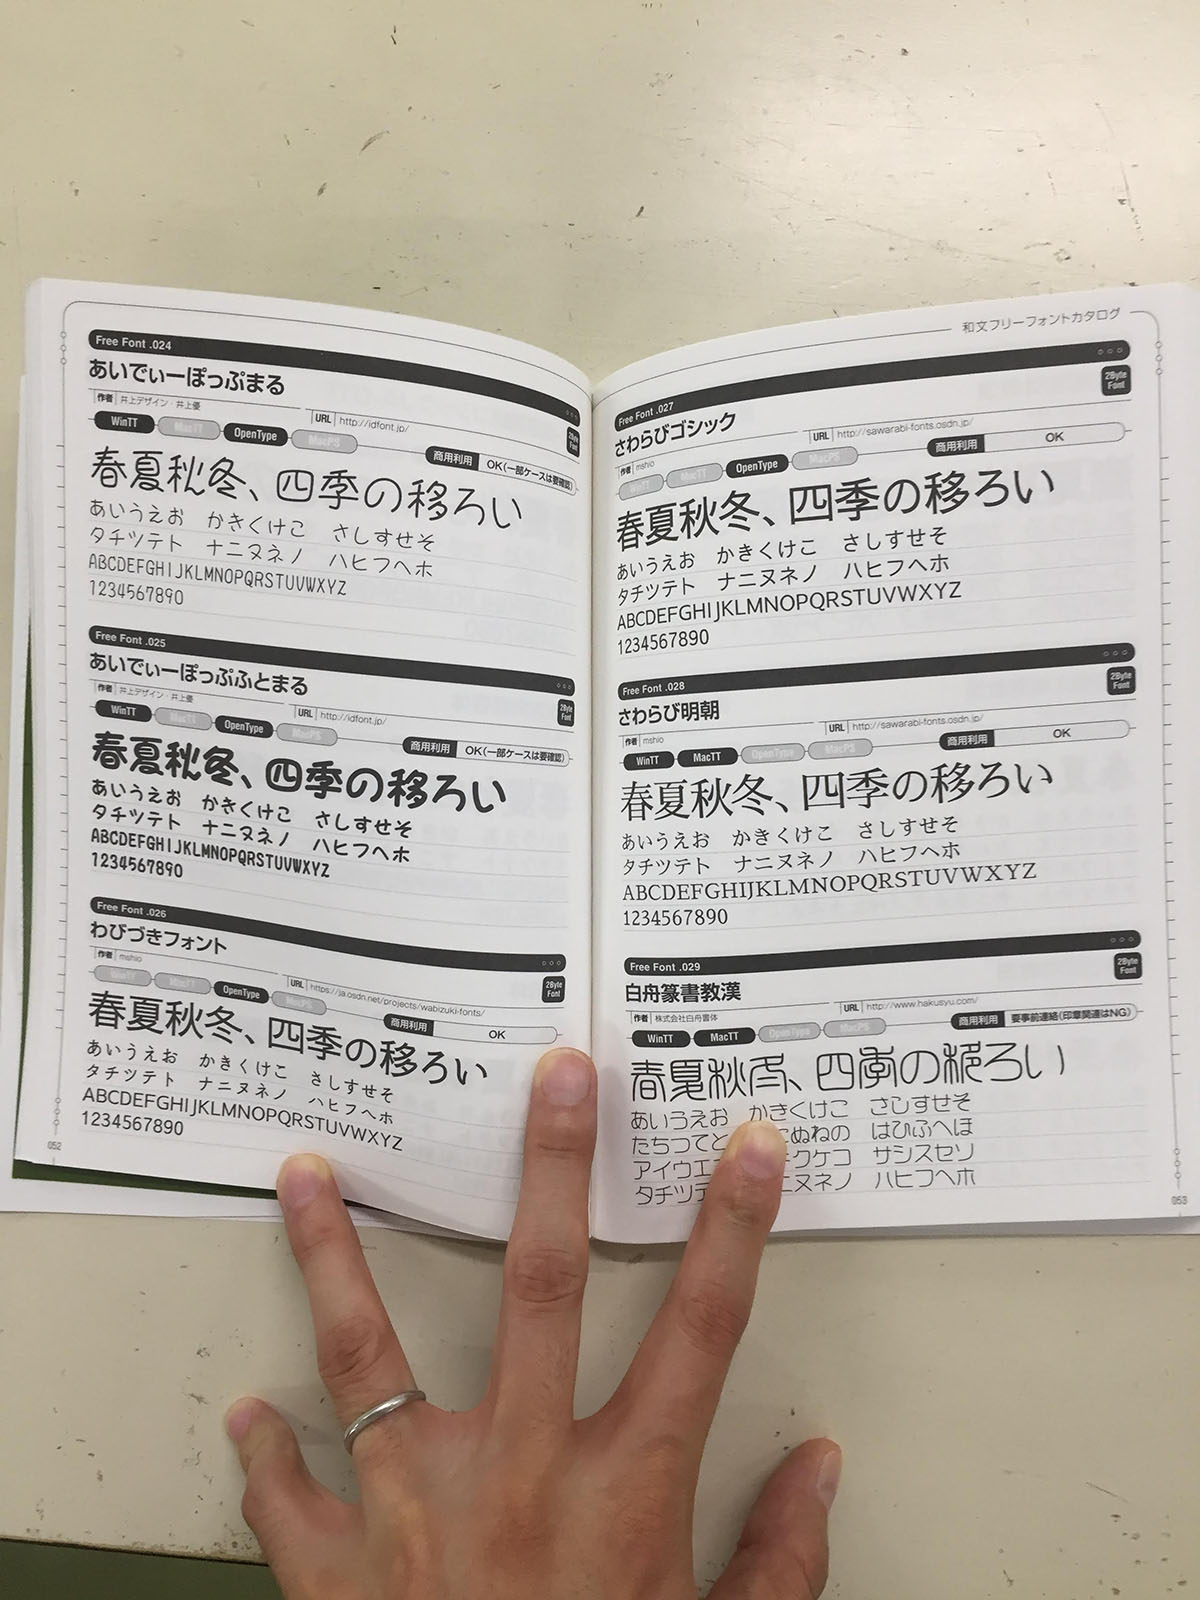 Free Font .024
あいでぃーぽっぷまる
作者 井上デザイン・井上優
URL http://idfont.jp/
2Byte Font
WinTT MacTT OpenType MacPS
商用利用 OK(一部ケースは要確認)
春夏秋冬、四季の移ろい
あいうえお かきくけこ さしすせそ
タチツテト ナニヌネノ ハヒフヘホ
ABCDEFGHIJKLMNOPQRSTUVWXYZ
1234567890
Free Font .025
あいでぃーぽっぷふとまる
作者 井上デザイン・井上優
URL http://idfont.jp/
2Byte Font
WinTT MacTT OpenType MacPS
商用利用 OK(一部ケースは要確認)
春夏秋冬、四季の移ろい
あいうえお かきくけこ さしすせそ
タチツテト ナニヌネノ ハヒフヘホ
ABCDEFGHIJKLMNOPQRSTUVWXYZ
1234567890
Free Font .026
わびづきフォント
作者 mshio
URL https://ja.osdn.net/projects/wabizuki-fonts/
2Byte Font
WinTT MacTT OpenType MacPS
商用利用 OK
春夏秋冬、四季の移ろい
あいうえお かきくけこ さしすせそ
タチツテト ナニヌネノ ハヒフヘホ
ABCDEFGHIJKLMNOPQRSTUVWXYZ
1234567890
052
和文フリーフォントカタログ
Free Font .027
さわらびゴシック
作者 mshio
URL http://sawarabi-fonts.osdn.jp/
2Byte Font
WinTT MacTT OpenType MacPS
商用利用 OK
春夏秋冬、四季の移ろい
あいうえお かきくけこ さしすせそ
タチツテト ナニヌネノ ハヒフヘホ
ABCDEFGHIJKLMNOPQRSTUVWXYZ
1234567890
Free Font .028
さわらび明朝
作者 mshio
URL http://sawarabi-fonts.osdn.jp/
2Byte Font
WinTT MacTT OpenType MacPS
商用利用 OK
春夏秋冬、四季の移ろい
あいうえお かきくけこ さしすせそ
タチツテト ナニヌネノ ハヒフヘホ
ABCDEFGHIJKLMNOPQRSTUVWXYZ
1234567890
Free Font .029
白舟篆書教漢
作者 株式会社白舟書体
URL http://www.hakusyu.com/
2Byte Font
WinTT MacTT OpenType MacPS
商用利用 要事前連絡(印章関連はNG)
春夏秋冬、四季の移ろい
あいうえお かきくけこ さしすせそ
たちつてと にぬねの はひふへほ
アイウエ クケコ サシスセソ
タチツテ ニヌネノ ハヒフヘホ
053